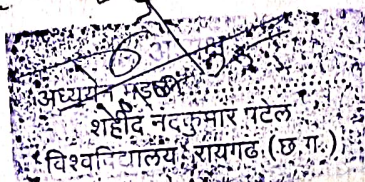 अध्ययन मंडल
शहीद नंदकुमार पटेल
विश्वविद्यालय, रायगढ़ (छ.ग.)